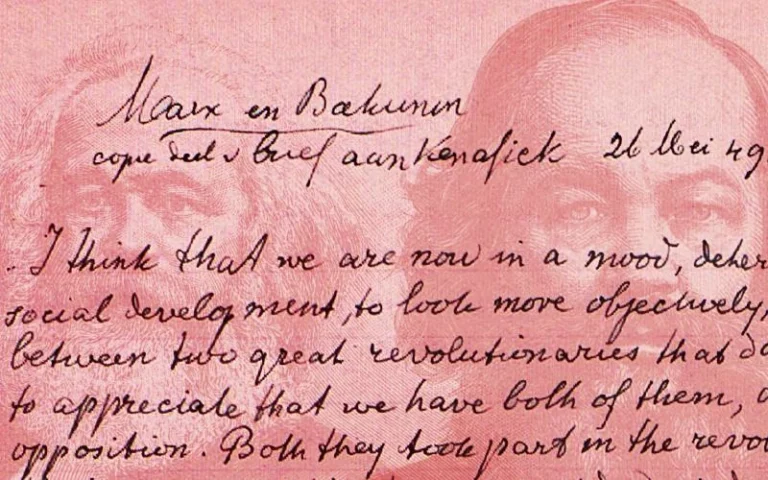 Marx en Bakunin
copie deel v brief aan Kenafick 26 Mei 49
I think that we are now in a mood, deter
social development, to look more objectively,
between two great revolutionaries that do
to appreciate that we have both of them,
opposition. Both they took part in the revo